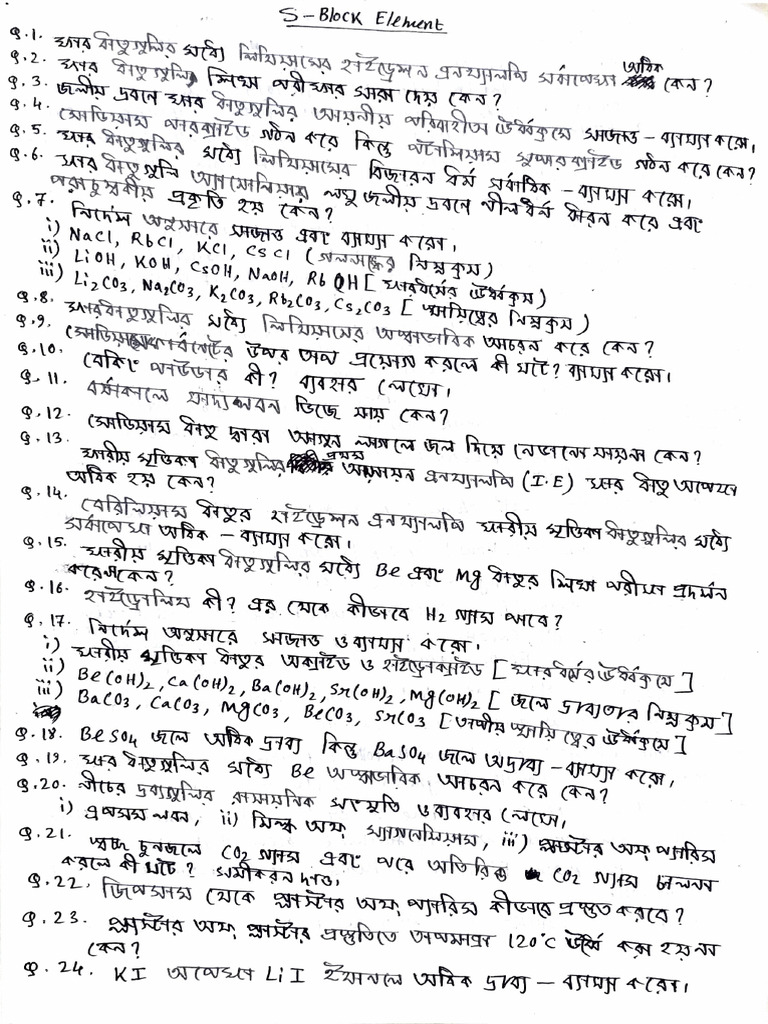 S-Block Element
Q.1. ক্ষার ধাতুগুলির মধ্যে লিথিয়ামের হাইড্রেশন এনথ্যালপি সর্বাপেক্ষা অধিক কেন?
Q.2. ক্ষার ধাতুগুলি শিখা পরীক্ষায় সাড়া দেয় কেন?
Q.3. জলীয় দ্রবণে ক্ষার ধাতুগুলির আয়নীয় পরিবাহীতা ঊর্ধ্বক্রমে সাজাও - ব্যাখ্যা করো।
Q.4. সোডিয়াম পারক্সাইড গঠন করে কিন্তু পটাশিয়াম সুপার অক্সাইড গঠন করে কেন?
Q.5. ক্ষার ধাতুগুলির মধ্যে লিথিয়ামের বিজারন ধর্ম সর্বাধিক - ব্যাখ্যা করো।
Q.6. ক্ষার ধাতুগুলি অ্যামোনিয়ার লঘু জলীয় দ্রবণে নীলবর্ন ধারন করে এবং
পরাচুম্বকীয় প্রকৃতি হয় কেন?
Q.7. নির্দেশ অনুসারে সাজাও এবং ব্যাখ্যা করো।
i) NaCl, RbCl, KCl, CsCl (গলনাঙ্কের নিম্নক্রম)
ii) LiOH, KOH, CsOH, NaOH, RbOH [ক্ষারধর্মের ঊর্ধ্বক্রম)
iii) Li2CO3, Na2CO3, K2CO3, Rb2CO3, Cs2CO3 [স্থায়িত্বের নিম্নক্রম)
Q.8. ক্ষারধাতুগুলির মধ্যে লিথিয়ামের অস্বাভাবিক আচরন করে কেন?
Q.9. সোডিয়াম কার্বনেটের উপর তাপ প্রয়োগ করলে কী ঘটে? ব্যাখ্যা করো।
Q.10. বেকিং পাউডার কী? ব্যবহার লেখো।
Q.11. বর্ষাকালে খাদ্যলবন ভিজে যায় কেন?
Q.12. সোডিয়াম ধাতু দ্বারা আগুন লাগলে জল দিয়ে নেভানো যায়না কেন?
Q.13. ক্ষারীয় মৃত্তিকা ধাতুগুলির প্রথম আয়নায়ন এনথ্যালপি (I.E) ক্ষার ধাতু অপেক্ষা
অধিক হয় কেন?
Q.14. বেরিলিয়াম ধাতুর হাইড্রেশন এনথ্যালপি ক্ষারীয় মৃত্তিকা ধাতুগুলির মধ্যে
সর্বাপেক্ষা অধিক - ব্যাখ্যা করো।
Q.15. ক্ষারীয় মৃত্তিকা ধাতুগুলির মধ্যে Be এবং Mg ধাতুর শিখা পরীক্ষা প্রদর্শন
করেনা কেন?
Q.16. হাইড্রোলিথ কী? এর থেকে কীভাবে H2 গ্যাস পাবে?
Q.17. নির্দেশ অনুসারে সাজাও ও ব্যাখ্যা করো।
i) ক্ষারীয় মৃত্তিকা ধাতুর অক্সাইড ও হাইড্রোক্সাইড [ক্ষারধর্মের ঊর্ধ্বক্রমে]
ii) Be(OH)2, Ca(OH)2, Ba(OH)2, Sr(OH)2, Mg(OH)2 [জলে দ্রাব্যতার নিম্নক্রম]
iii) BaCO3, CaCO3, MgCO3, BeCO3, SrCO3 [তাপীয় স্থায়িত্বের ঊর্ধ্বক্রমে]
Q.18. BeSO4 জলে অধিক দ্রাব্য কিন্তু BaSO4 জলে অদ্রাব্য - ব্যাখ্যা করো।
Q.19. ক্ষার ধাতুগুলির মধ্যে Be অস্বাভাবিক আচরন করে কেন?
Q.20. নীচের দ্রব্যগুলির রাসায়নিক সংযুতি ও ব্যবহার লেখো।
i) এপসম লবন, ii) মিল্ক অফ্ ম্যাগনেসিয়াম, iii) প্লাস্টার অফ্ প্যারিস
Q.21. স্বচ্ছ চুনজলে CO2 গ্যাস এবং পরে অতিরিক্ত CO2 গ্যাস চালনা
করলে কী ঘটে? সমীকরন দাও।
Q.22. জিপসাম থেকে প্লাস্টার অফ্ প্যারিস কীভাবে প্রস্তুত করবে?
Q.23. প্লাস্টার অফ্ প্লাস্টার প্রস্তুতিতে তাপমাত্রা 120°C ঊর্ধ্বে করা হয়না
কেন?
Q.24. KI অপেক্ষা LiI ইথানলে অধিক দ্রাব্য - ব্যাখ্যা করো।